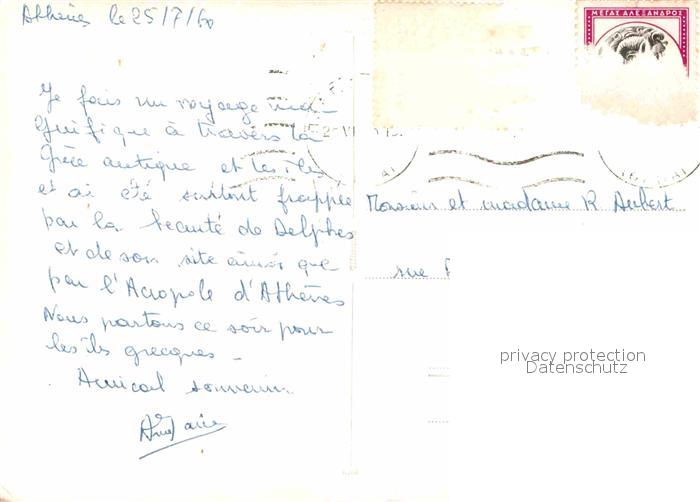 Athènes le 25/7/60
Je fais un voyage ma-
gnifique à travers la
Grèce antique et les îles
et ai été surtout frappée
par la beauté de Delphes
et de son site ainsi que
par l'Acropole d'Athènes
Nous partons ce soir pour
les îles grecques -
Amical souvenir
ΜΕΓΑΣ ΑΛΕΞΑΝΔΡΟΣ
Monsieur et madame R Aubert
rue
privacy protection
Datenschutz